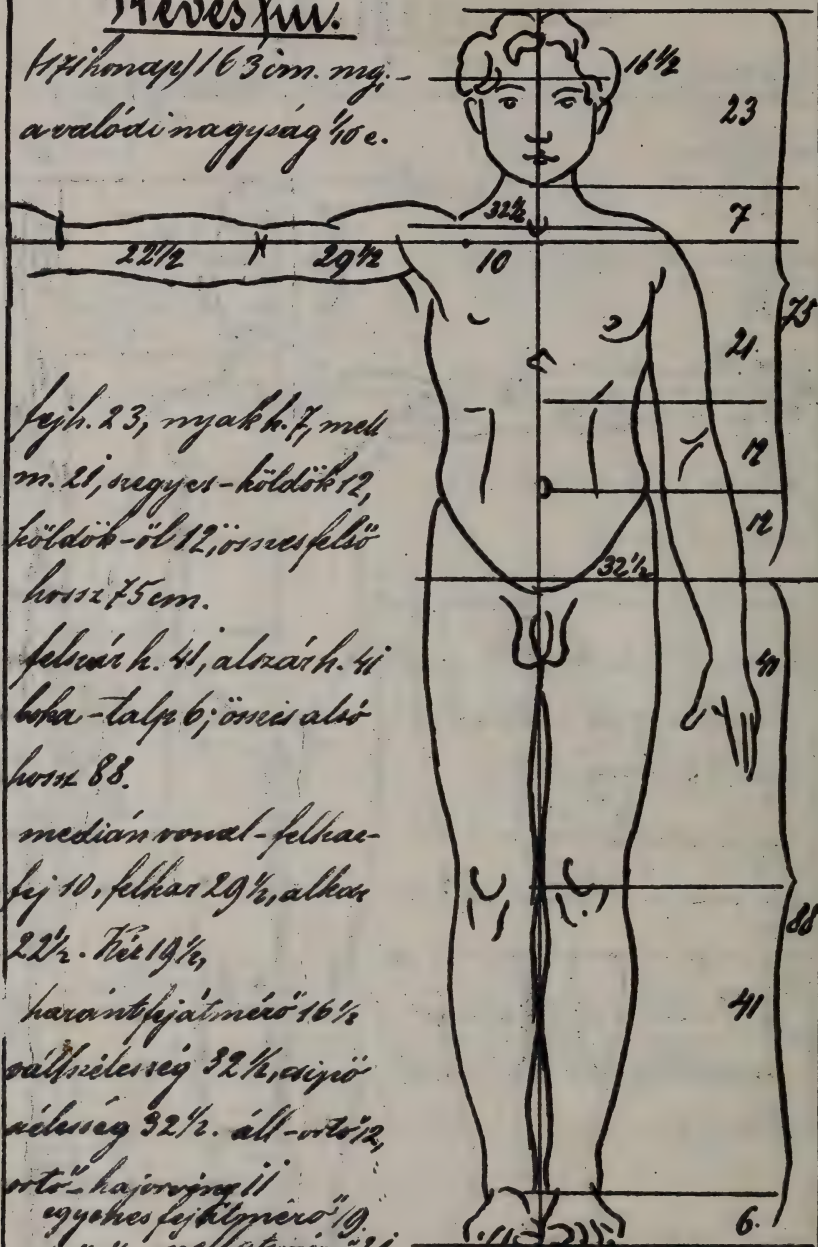 163 cm. mg.-
a valódi nagyság 1/10 e.
fejh. 23, nyak h. 7, mell
m. 21, szegyes-köldök 12,
köldök-öl 12, összes felső
hossz 75 cm.
felszár h. 41, alszár h. 41
boka-talp 6; összes alsó
hossz 88.
medián vonal-felkar-
fej 10, felkar 29½, alkar
22½. Kéz 19½,
harántfejátmérő 16½
vállszélesség 32½, csipő
szélesség 32½. áll-ortő 12,
ortő-hajorvény 11
egyenes fejátmérő 19.
16½
23
32½
7
22½
29½
10
75
21
12
12
32½
41
88
41
6.